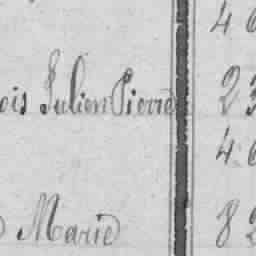 4 6
ois Julien Pierre 23
4 6
Marie 82